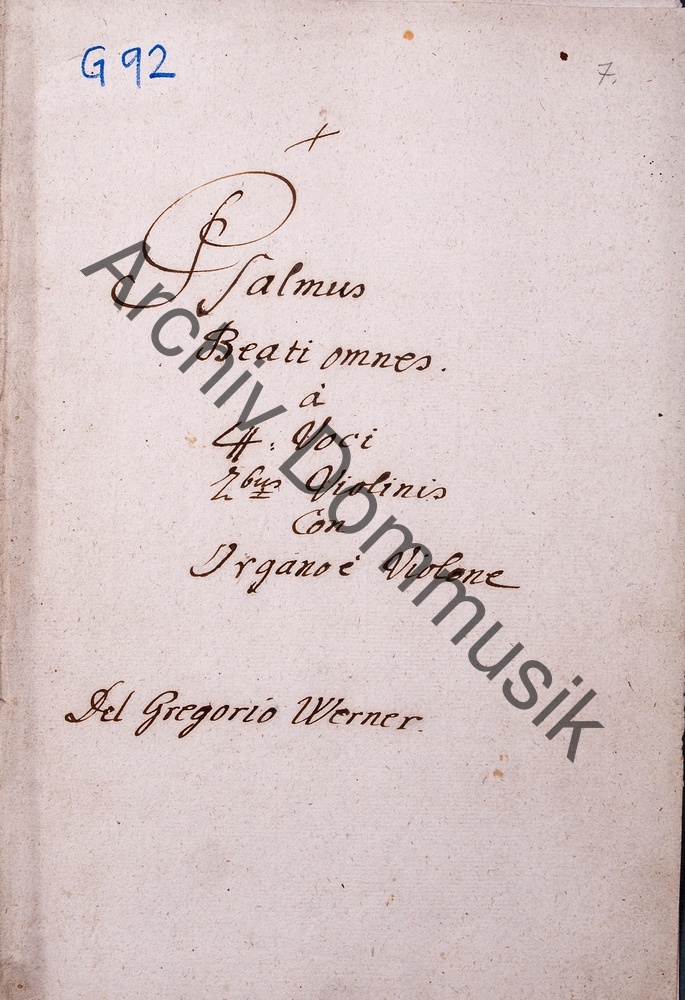 G 92
7.
Psalmus
Beati omnes.
à
4. Voci
2bus Violinis
Con
Organo è Violone
Del Gregorio Werner.
Archiv Dommusik